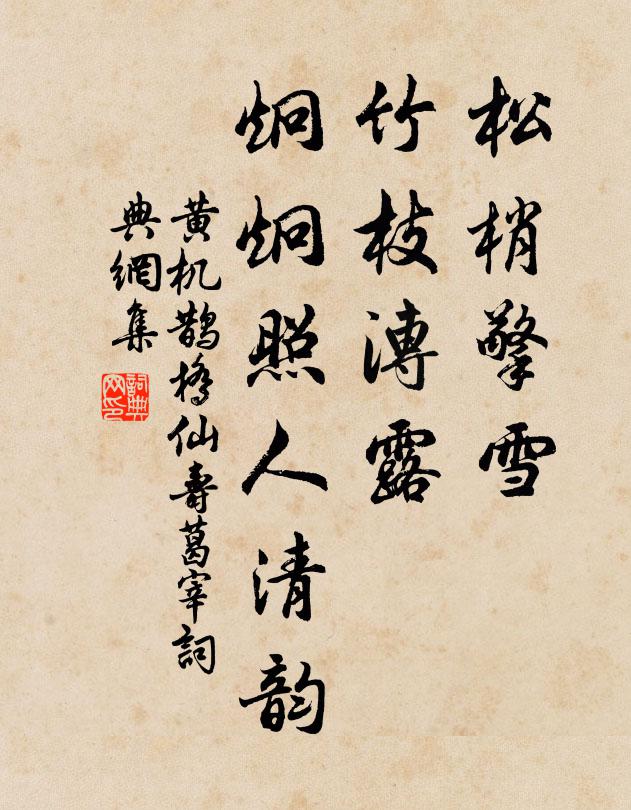 松梢擎雪
竹枝溥露
炯炯照人清韵
黄机鹊桥仙寿葛宰詞
典網集
詞典网印